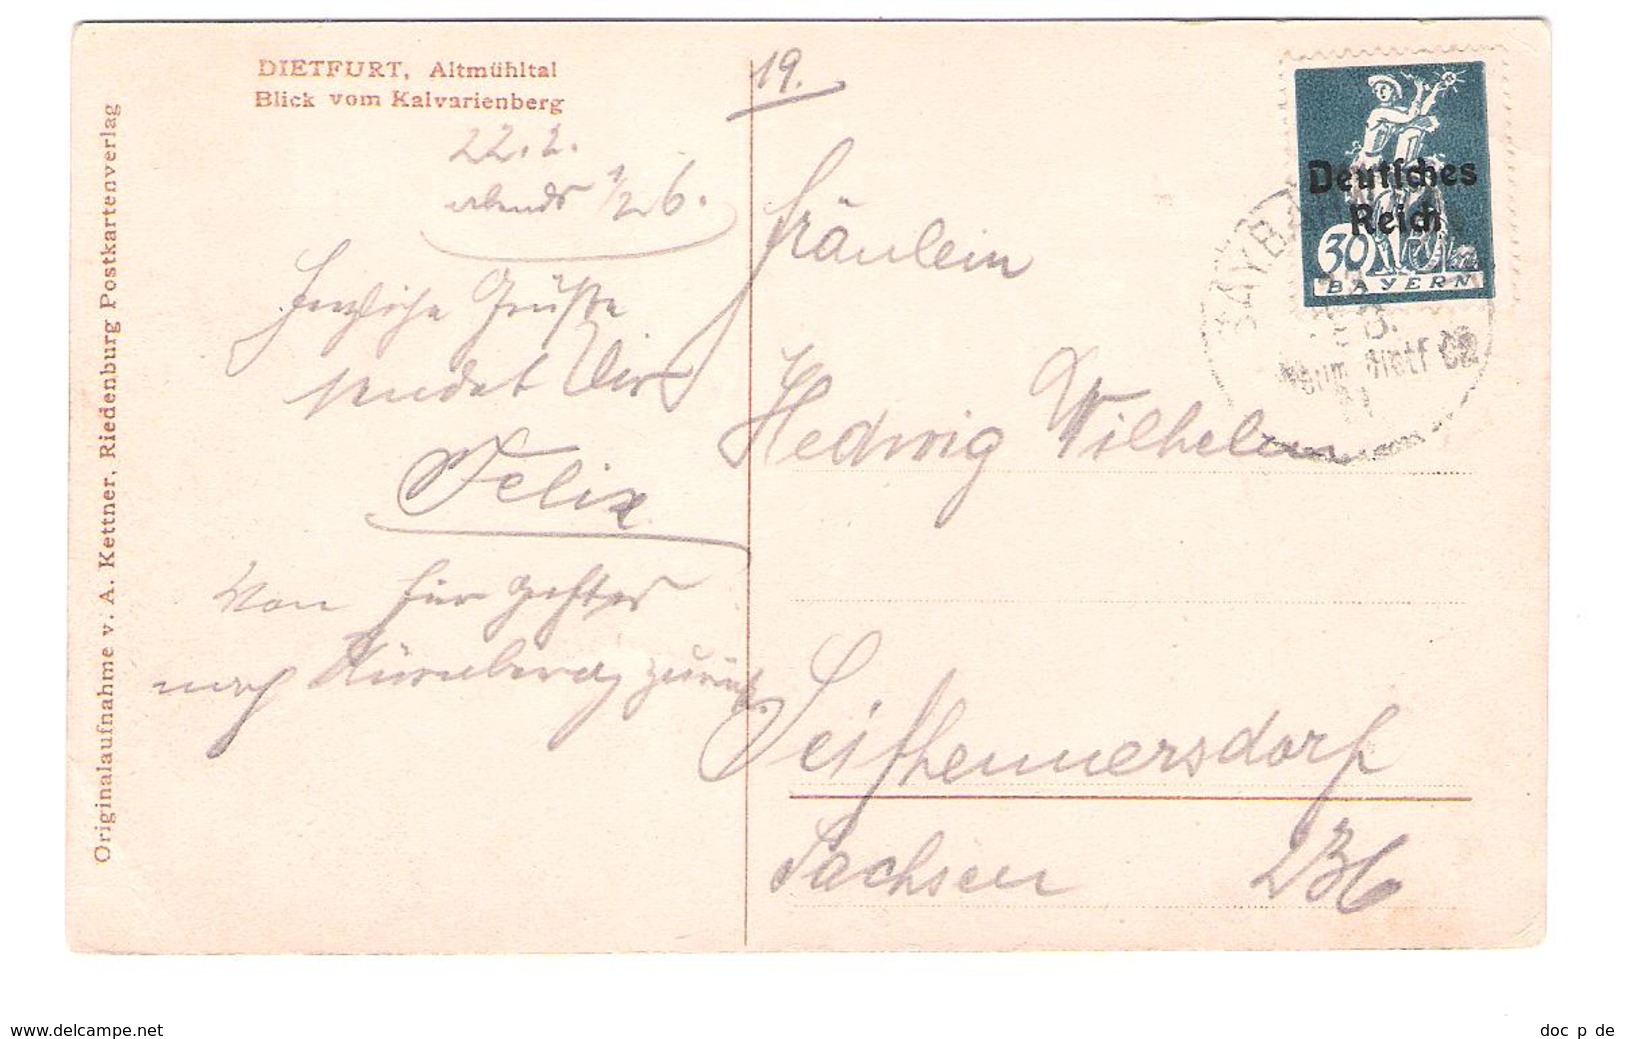 DIETFURT, Altmühltal
Blick vom Kalvarienberg
Originalaufnahme v. A. Kettner, Riedenburg Postkartenverlag
22.2.
abends 1/2 6.
Herzliche Grüße
sendet Dir
Felix
Von hier gehts
nach Nürnberg zurück.
19.
Fräulein
Hedwig Wilhelm
Seifhennersdorf
Sachsen 236
Deutsches
Reich
30
BAYERN
BAY.B
www.delcampe.net
doc p de